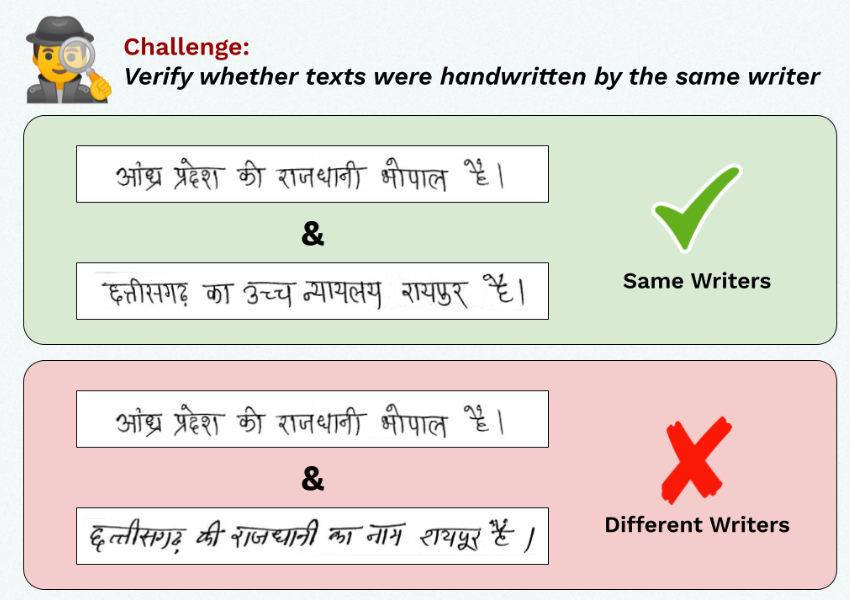 Challenge:
Verify whether texts were handwritten by the same writer
आंध्र प्रदेश की राजधानी भोपाल है।
&
छत्तीसगढ़ का उच्च न्यायलय रायपुर है।
Same Writers
आंध्र प्रदेश की राजधानी भोपाल है।
&
छत्तीसगढ़ की राजधानी का नाम रायपूर है।
Different Writers